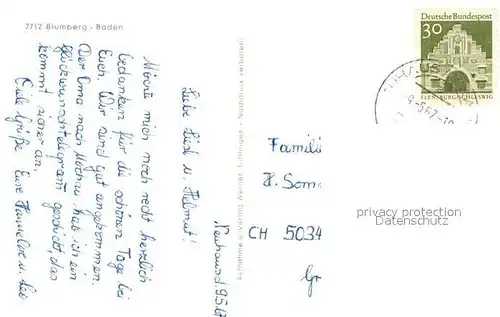 7712 Blumberg - Baden
Neuhausd. 9.5.67
Liebe Liesl u. Helmut!
Möchte mich noch recht herzlich
bedanken für die schönen Tage bei
Euch. Wir sind gut angekommen.
Der Oma nach habe ich ein
Glückwunschtelegram geschickt, das
kommt sicher an.
Viele Grüße Eure Hannelore u.
Aufnahme u. Verlag Werner, Tuttlingen - Nachdruck verboten!
Deutsche Bundespost
30
FLENSBURG/SCHLESWIG
Famili
H. Som
CH 5034
Gr
privacy protection
Datenschutz